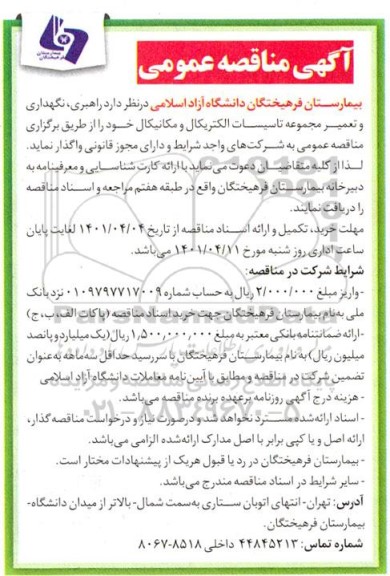 بیمارستان
فرهیختگان
آگهی مناقصه عمومی
بیمارستان فرهیختگان دانشگاه آزاد اسلامی درنظر دارد راهبری، نگهداری
و تعمیر مجموعه تاسیسات الکتریکال و مکانیکال خود را از طریق برگزاری
مناقصه عمومی به شرکت‌های واجد شرایط و دارای مجوز قانونی واگذار نماید.
لـذا از کلیه متقاضیـان دعوت می‌نماید با ارائه کارت شناسـایی و معرفینامه به
دبیرخانه بیمارستان فرهیختگان واقع در طبقه هفتم مراجعه و اسـناد مناقصه
را دریافت نمایند.
مهلت خرید، تکمیل و ارائه اسـناد مناقصه از تاریخ ۱۴۰۱/۰۴/۰۴ لغایت پایان
ساعت اداری روز شنبه مورخ ۱۴۰۱/۰۴/۱۱ می‌باشد.
شرایط شرکت در مناقصه:
-واریز مبلغ ۲/۰۰۰/۰۰۰ ریال به حساب شماره ۰۱۰۹۷۹۷۷۱۷۰۰۹ نزد بانک
ملی به‌نام بیمارستان فرهیختگان جهت خرید اسناد مناقصه (پاکات الف، ب، ج)
-ارائه ضمانتنامه بانکی معتبر به مبلغ ۱,۵۰۰,۰۰۰,۰۰۰ ریال (یک میلیارد و پانصد
میلیون ریال) به نام بیمارسـتان فرهیختگان با سررسید حداقل سه‌ماهه به‌عنوان
تضمین شرکت در مناقصه و مطابق با آیین‌نامه معاملات دانشگاه آزاد اسلامی
- هزینه درج آگهی روزنامه برعهده برنده مناقصه می‌باشد.
- اسـناد ارائه‌شـده مسـترد نخواهد شد و درصورت نیاز و درخواست مناقصه‌گذار،
ارائه اصل و یا کپی برابر با اصل مدارک ارائه‌شده الزامی می‌باشد.
- بیمارستان فرهیختگان در رد یا قبول هریک از پیشنهادات مختار است.
- سایر شرایط در اسناد مناقصه مندرج می‌باشد.
آدرس: تهران- انتهای اتوبان ستاری به‌سمت شمال- بالاتر از میدان دانشگاه-
بیمارستان فرهیختگان.
شماره تماس: ۴۴۸۴۵۲۱۳ داخلی ۸۵۱۸-۸۰۶۷
پایگاه اطلاع رسانی مناقصه و مزایده
۰۲۱-۸۸۳۴۹۶۷۰-۵